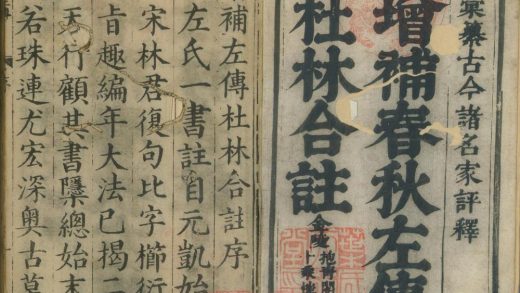 彙纂古今諸名家評釋
增補春秋左傳
杜林合註
金陵
補左傳杜林合註序
左氏一書註自元凱始
宋林君復句比字櫛衍
旨趣編年大法已揭二
天行顧其書總始末
若珠連尤宏深奧古莫